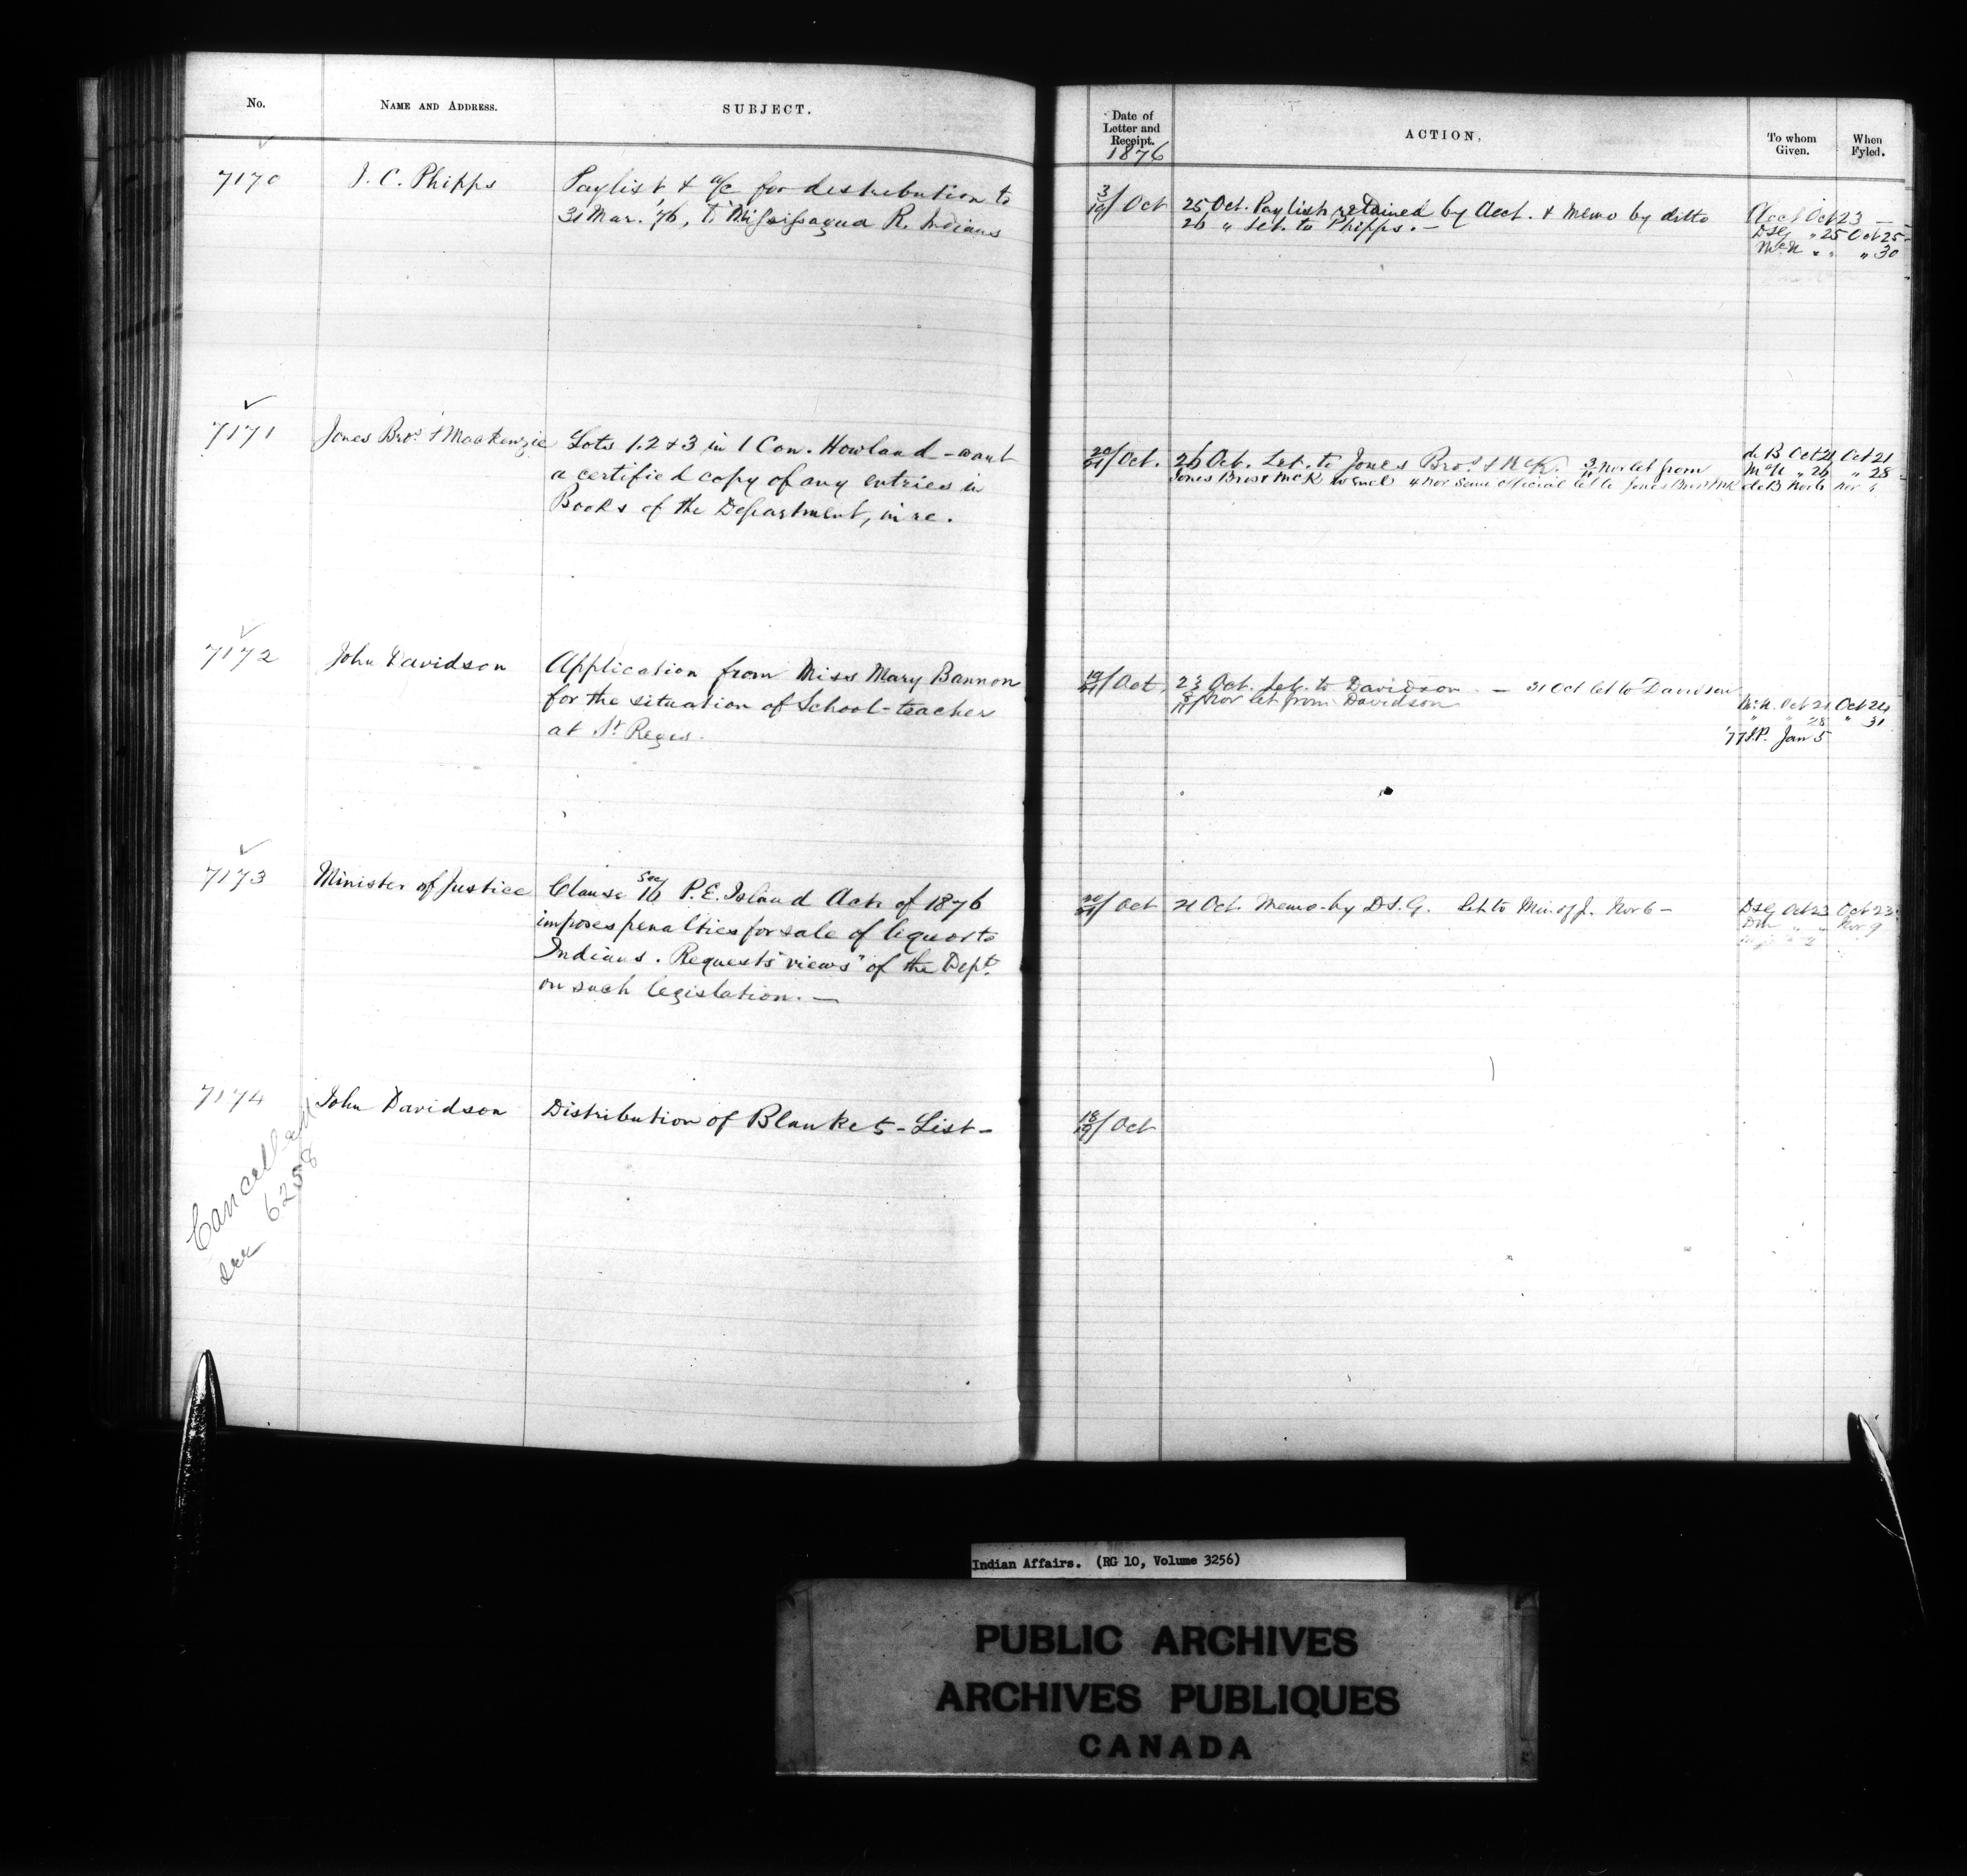 No.
NAME AND ADDRESS.
SUBJECT.
7170
J. C. Phipps
Paylist & a/c for destribution to
31 Mar. '76, to Missisagua R. Indians
7171
Jones Bros. & Mackenzie
Lots 1.2 & 3 in 1 Con. Howland - want
a certified copy of any entries in
Books of the Department, in re.
7172
John Davidson
Application from Miss Mary Bannon
for the situation of School-teacher
at St Regis.
7173
Minister of Justice
Clause Sec 16 P.E. Island Act of 1876
imposes penalties for sale of liquor to
Indians. Requests "views" of the Dept.
on such legislation. —
7174
John Davidson
Distribution of Blankets - List -
Cancelled
see 6258
Date of
Letter and
Receipt.
1876
ACTION.
To whom
Given.
When
Fyled.
3/19 Oct
25 Oct. Paylist retained by Acct. & Memo by ditto
26 " Let. to Phipps. —
Acct Oct 23 —
DSG " 25 Oct 25
McN " " " 30
20/21 Oct.
26 Oct. Let. to Jones Bros. & McK. 3/ Nov let from
Jones Bros & McK 4 Nov same official let to Jones Bros & McK
de B Oct 21 Oct 21
McN " 26 " 28
de B Nov 6 Nov
19/21 Oct,
23 Oct. Let. to Davidson. — 31 Oct let to Davidson
8/11 Nov let from Davidson
McN. Oct 21 Oct 24
" " 28 " 31
'77 S.P. Jan 5
20/21 Oct
21 Oct. Memo. by D.S.G. Let to Min of J. Nov 6 -
DSG Oct 23 Oct 23
" " Nov 9
18/19 Oct
Indian Affairs. (RG 10, Volume 3256)
PUBLIC ARCHIVES
ARCHIVES PUBLIQUES
CANADA